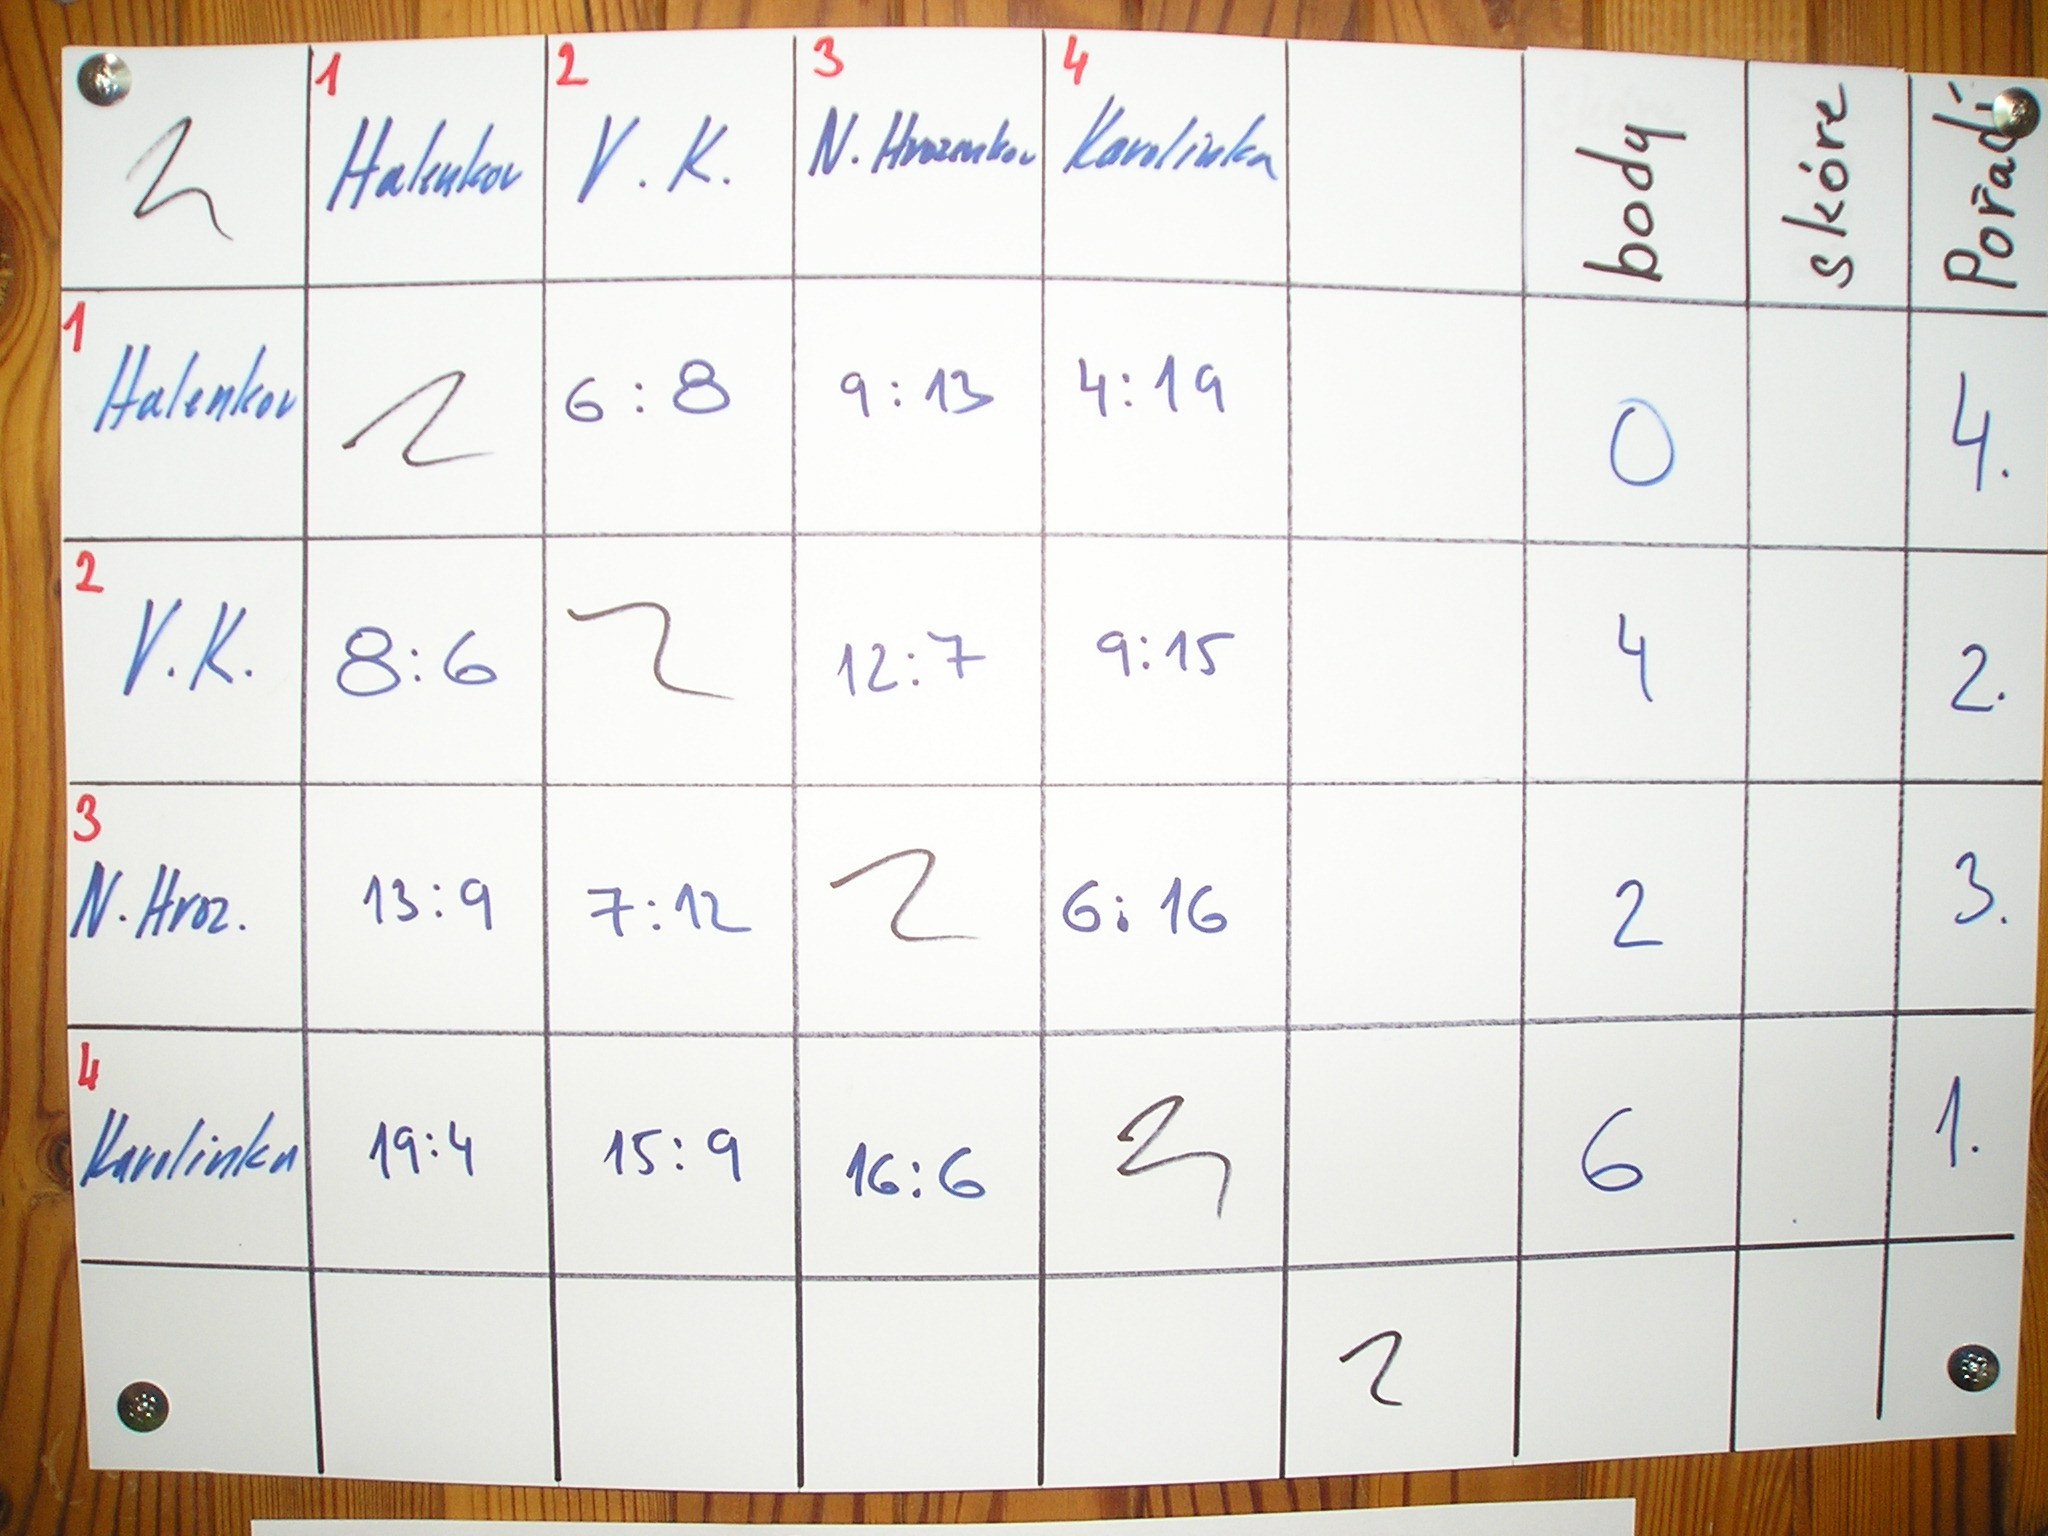 1 Halenkov 2 V. K. 3 N. Hrozenkov 4 Karolinka body skóre Pořadí
1 Halenkov 6:8 9:13 4:19 0 4.
2 V.K. 8:6 12:7 9:15 4 2.
3 N. Hroz. 13:9 7:12 6:16 2 3.
4 Karolinka 19:4 15:9 16:6 6 1.